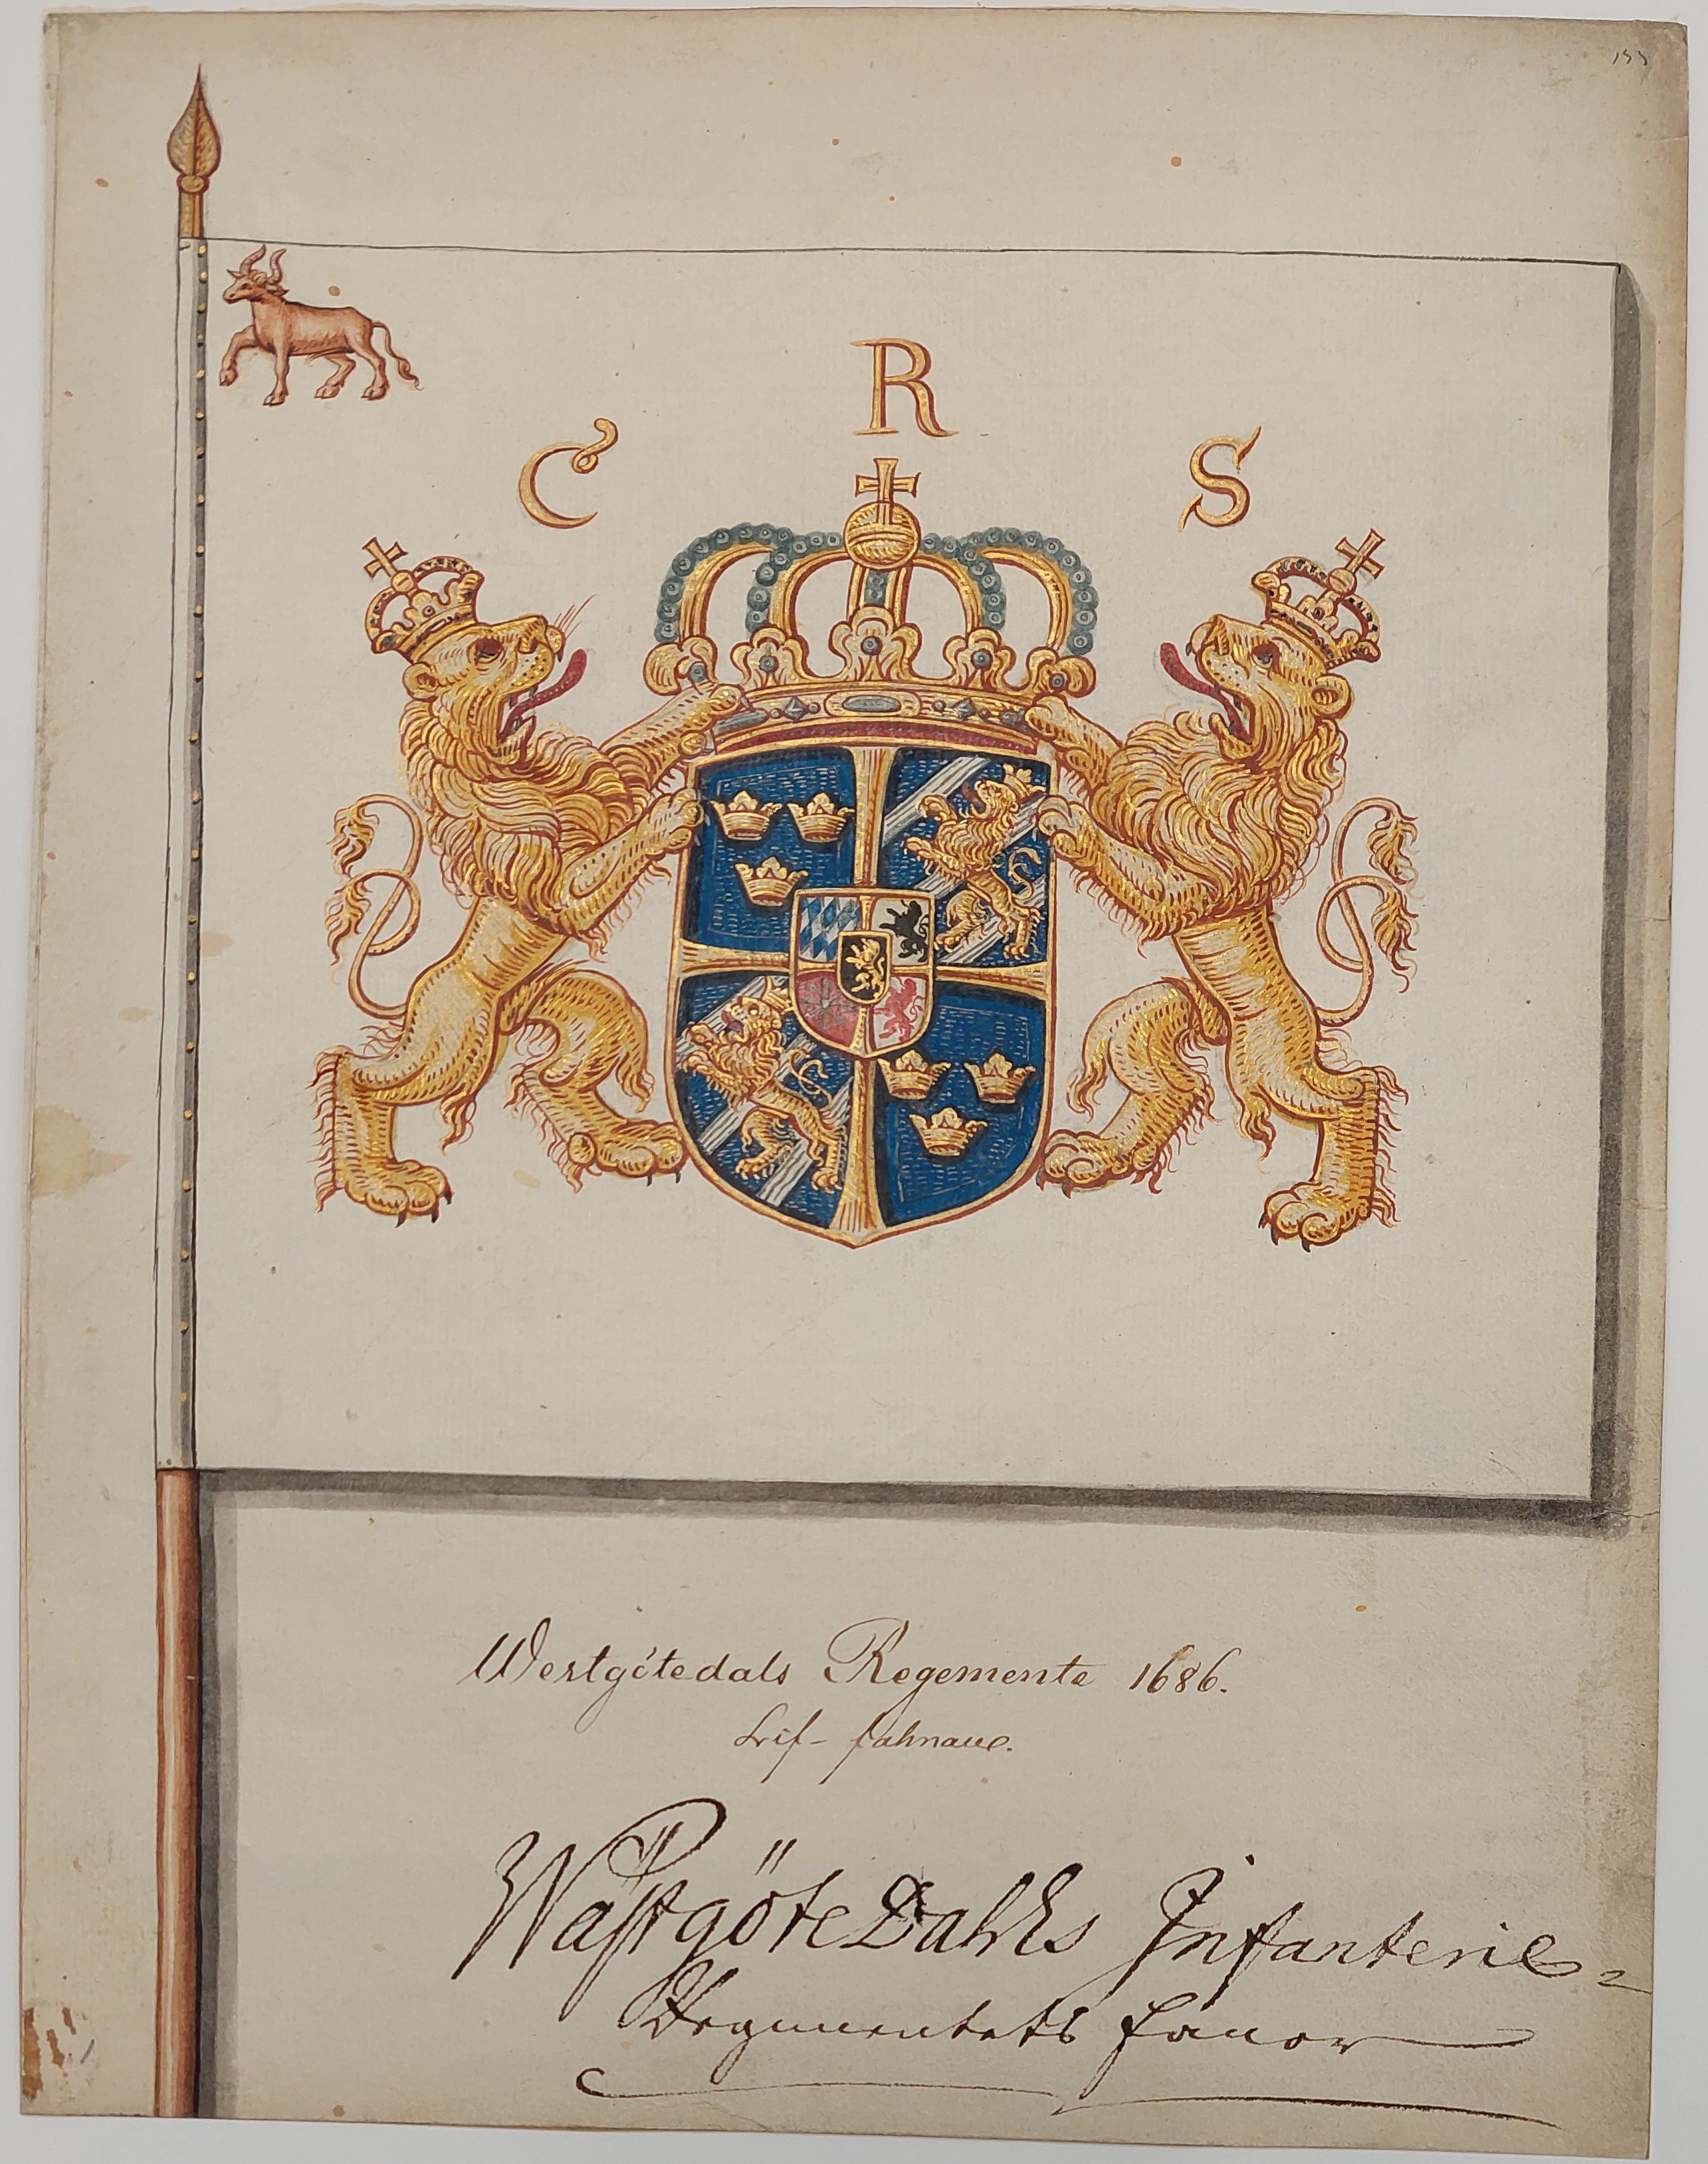 155
C R S
Westgötedals Regemente 1686.
Lif-fahnaue.
WästgöteDahls Infanterie-
Regementets fanor